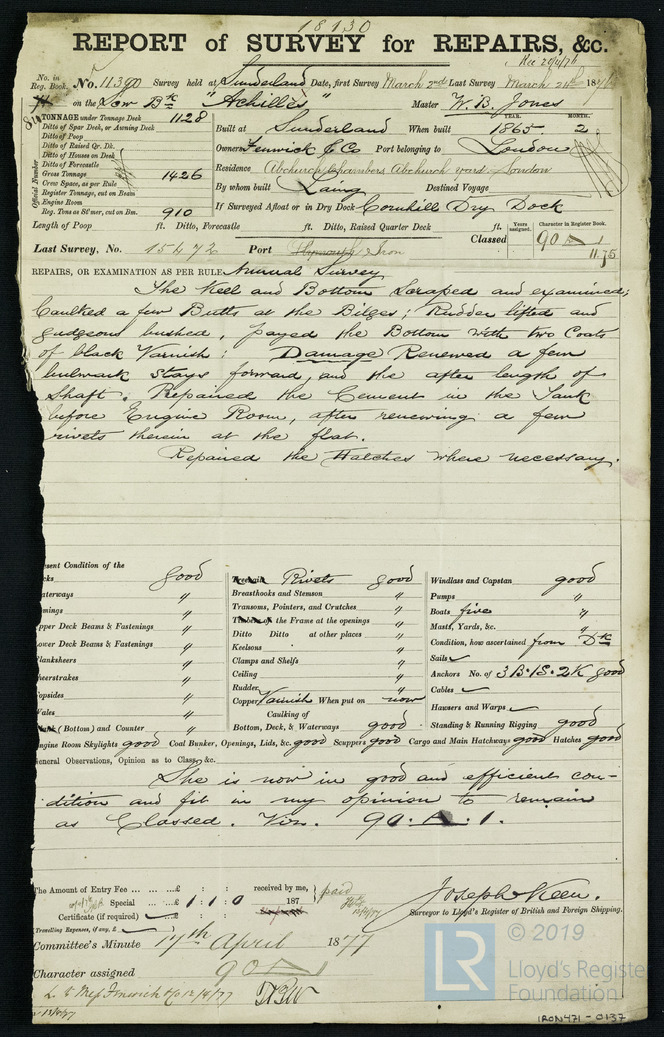 18130
REPORT of SURVEY for REPAIRS, &c.
Rec 20/4/76
No. in Reg. Book. No. 11390 Survey held at Sunderland Date, first Survey March 2nd Last Survey March 24th 187
on the Scw Bk "Achilles" Master W. B. Jones
TONNAGE under Tonnage Deck 1128
Ditto of Spar Deck, or Awning Deck
Ditto of Poop
Ditto of Raised Qr. Dk.
Ditto of Houses on Deck
Ditto of Forecastle
Gross Tonnage 1426
Crew Space, as per Rule
Register Tonnage, cut on Beam
Engine Room
Reg. Tons as St'mer, cut on Bm. 910
Official Number
YEAR. MONTH.
Built at Sunderland When built 1865 . 2
Owners Fenwick & Co Port belonging to London
Residence Abchurch Chambers Abchurch yard London
By whom built Laing Destined Voyage
If Surveyed Afloat or in Dry Dock Cornhill Dry Dock
Length of Poop ft. Ditto, Forecastle ft. Ditto, Raised Quarter Deck ft.
Years assigned. Character in Register Book.
Last Survey, No. 15472 Port Plymouth Iron Classed 90 A 1
11.75
REPAIRS, OR EXAMINATION AS PER RULE Annual Survey
The Keel and Bottom Scraped and examined;
Caulked a few Butts at the Bilges; Rudder lifted and
gudgeons bushed, payed the Bottom with two Coats
of black Varnish: Damage Renewed a few
bulwark stays forward, and the after length of
Shaft. Repaired the Cement in the Tank
before Engine Room, after renewing a few
rivets therein at the flat.
Repaired the Hatches where necessary.
esent Condition of the
cks good
aterways "
mings "
pper Deck Beams & Fastenings "
ower Deck Beams & Fastenings "
lanksheers "
heerstrakes "
opsides "
ales "
(Bottom) and Counter "
Treenails Rivets good
Breasthooks and Stemson "
Transoms, Pointers, and Crutches "
Timbers of the Frame at the openings "
Ditto Ditto at other places "
Keelsons "
Clamps and Shelfs "
Ceiling "
Rudder "
Copper Varnish When put on now
Caulking of
Bottom, Deck, & Waterways good
Windlass and Capstan good
Pumps "
Boats five "
Masts, Yards, &c. "
Condition, how ascertained from Dk
Sails ✓
Anchors No. of 3 B. 1 S. 2 K good
Cables ✓
Hawsers and Warps ✓
Standing & Running Rigging good
ngine Room Skylights good Coal Bunker, Openings, Lids, &c. good Scuppers good Cargo and Main Hatchways good Hatches good
eneral Observations, Opinion as to Class, &c.
She is now in good and efficient con-
dition and fit in my opinion to remain
as Classed. Viz. 90. A. 1.
The Amount of Entry Fee ... ... ...£ : : received by me, paid
Special ... ...£ 1 : 1 : 0 187
Certificate (if required) ✓
(Travelling Expenses, if any, £ ✓ )
Joseph Keen.
Surveyor to Lloyd's Register of British and Foreign Shipping.
Committee's Minute 17th April 1877
Character assigned 90 A 1
L. to Mess Fenwick & Co 12/4/77
13/4/77
LR © 2019
Lloyd's Register
Foundation
IRON471-0137